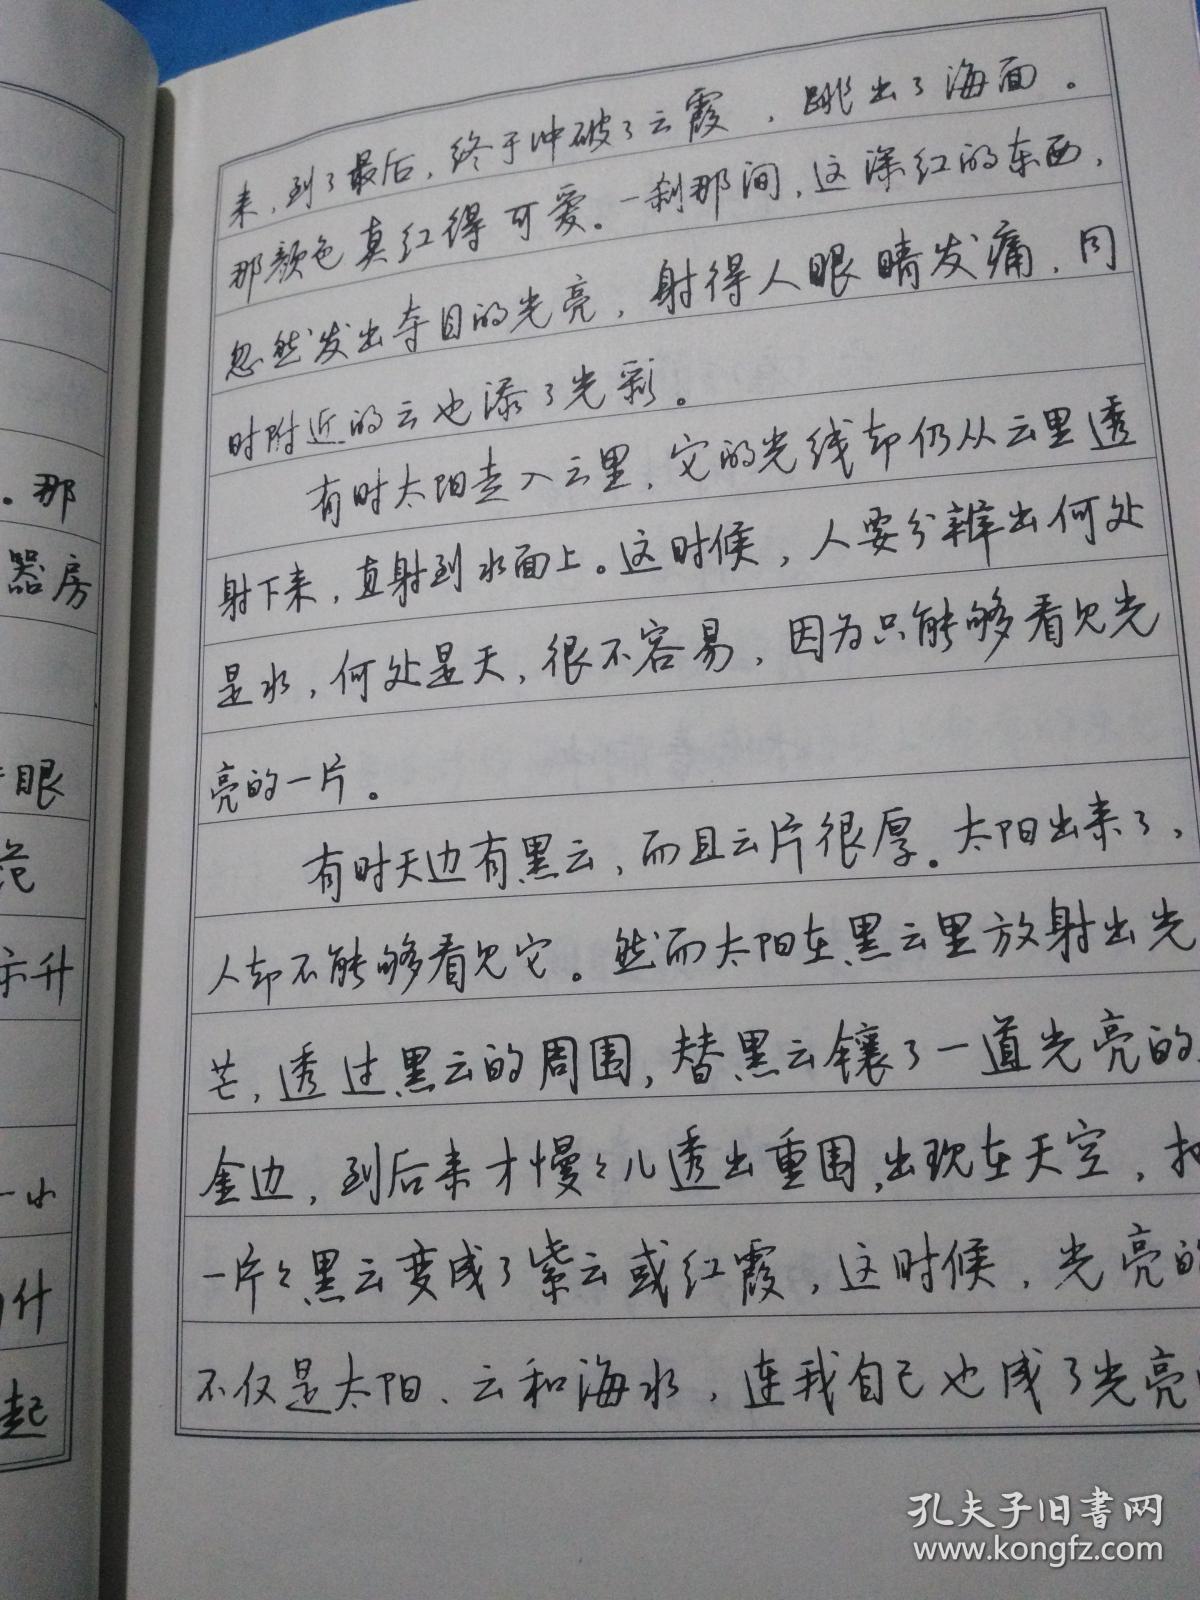 。那
器房
眼
范
升
一小
什
起
来，到了最后，终于冲破了云霞，跳出了海面。
那颜色真红得可爱。一刹那间，这深红的东西，
忽然发出夺目的光亮，射得人眼睛发痛，同
时附近的云也添了光彩。
有时太阳走入云里，它的光线却仍从云里透
射下来，直射到水面上。这时候，人要分辨出何处
是水，何处是天，很不容易，因为只能够看见光
亮的一片。
有时天边有黑云，而且云片很厚。太阳出来了，
人却不能够看见它。然而太阳在黑云里放射出光
芒，透过黑云的周围，替黑云镶了一道光亮的
金边，到后来才慢々儿透出重围，出现在天空，把
一片々黑云变成了紫云或红霞，这时候，光亮的
不仅是太阳、云和海水，连我自己也成了光亮
孔夫子旧书网
www.kongfz.com